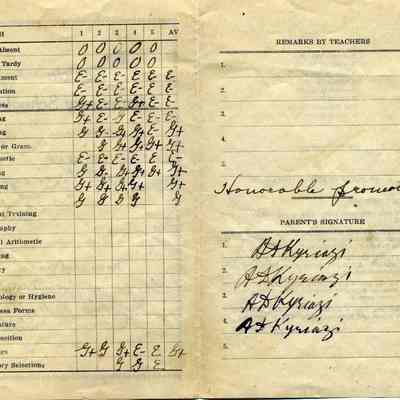 H 1 2 3 4 5 AV
Absent 0 0 0 0 0
Tardy 0 0 0 0 0
ment E- E- E- E E E-
tion E- E- E- E E E-
ess G+ E- E G+ E- E-
ng G+ E- G E- E- E-
ng G G G+ G E- G+
or Gram. G G+ G+ G+ G+
metic E- E- E- E E E-
ng G G- G+ G+ G+ G+
ing G+ G+ G+ G+ G+
G G G G G
l Training
phy
l Arithmetic
ing
ing
ry
ology or Hygiene
ess Forms
ature
osition
rs G+ G G+ E- E G+
ory Selections G G E
REMARKS BY TEACHERS
1.
2.
3.
4.
5.
Honorable promo
PARENT'S SIGNATURE
1. A D Kyriazi
2. A D Kyriazi
3. A D Kyriazi
4. A D Kyriazi
5.